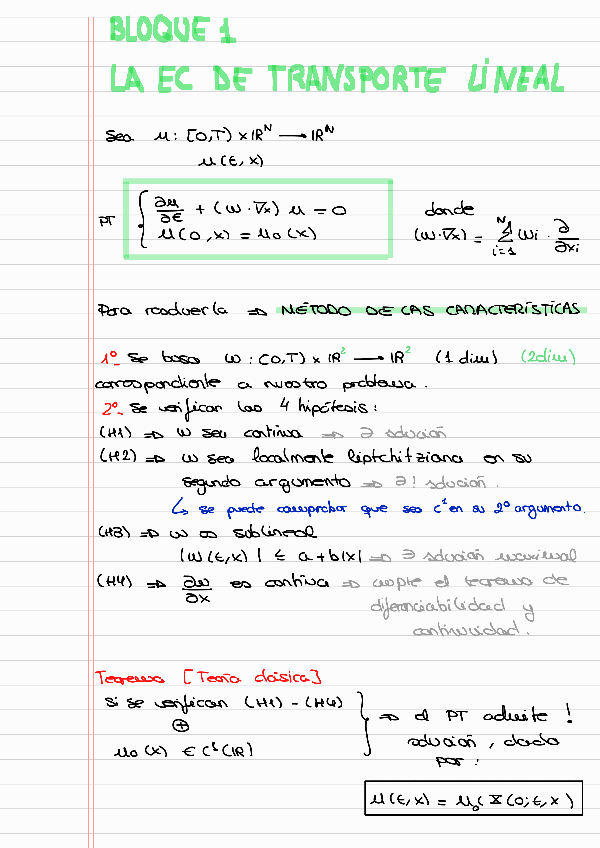 BLOQUE 1
LA EC DE TRANSPORTE LINEAL
Sea u: [0,T) × ℝᴺ → ℝᴺ
u(t, x)
PT { ∂u/∂t + (w · ∇x) u = 0
u(0, x) = u₀(x)
donde
(w·∇x) = Σᵢ₌₁ᴺ wi · ∂/∂xi
Para resolverla ⇒ MÉTODO DE LAS CARACTERÍSTICAS
1º_ Se busca w : [0,T) × ℝ² → ℝ² (1 dim) (2dim)
correspondiente a nuestro problema.
2º_ Se verifican las 4 hipótesis:
(H1) ⇒ w sea continua ⇒ ∃ solución
(H2) ⇒ w sea localmente liptchitziana en su
segundo argumento ⇒ ∃! solución.
↳ se puede comprobar que sea C¹ en su 2º argumento.
(H3) ⇒ w es sublineal
|w(t,x)| ≤ a+b|x| ⇒ ∃ solución maximal
(H4) ⇒ ∂w/∂x es continua ⇒ cumple el teorema de
diferenciabilidad y
continuidad.
Teorema [Teoría clásica]
Si se verifican (H1) - (H4)
⊕
u₀(x) ∈ C¹(ℝ)
} ⇒ el PT admite !
solución, dada
por:
u(t,x) = u₀(X(0;t,x)